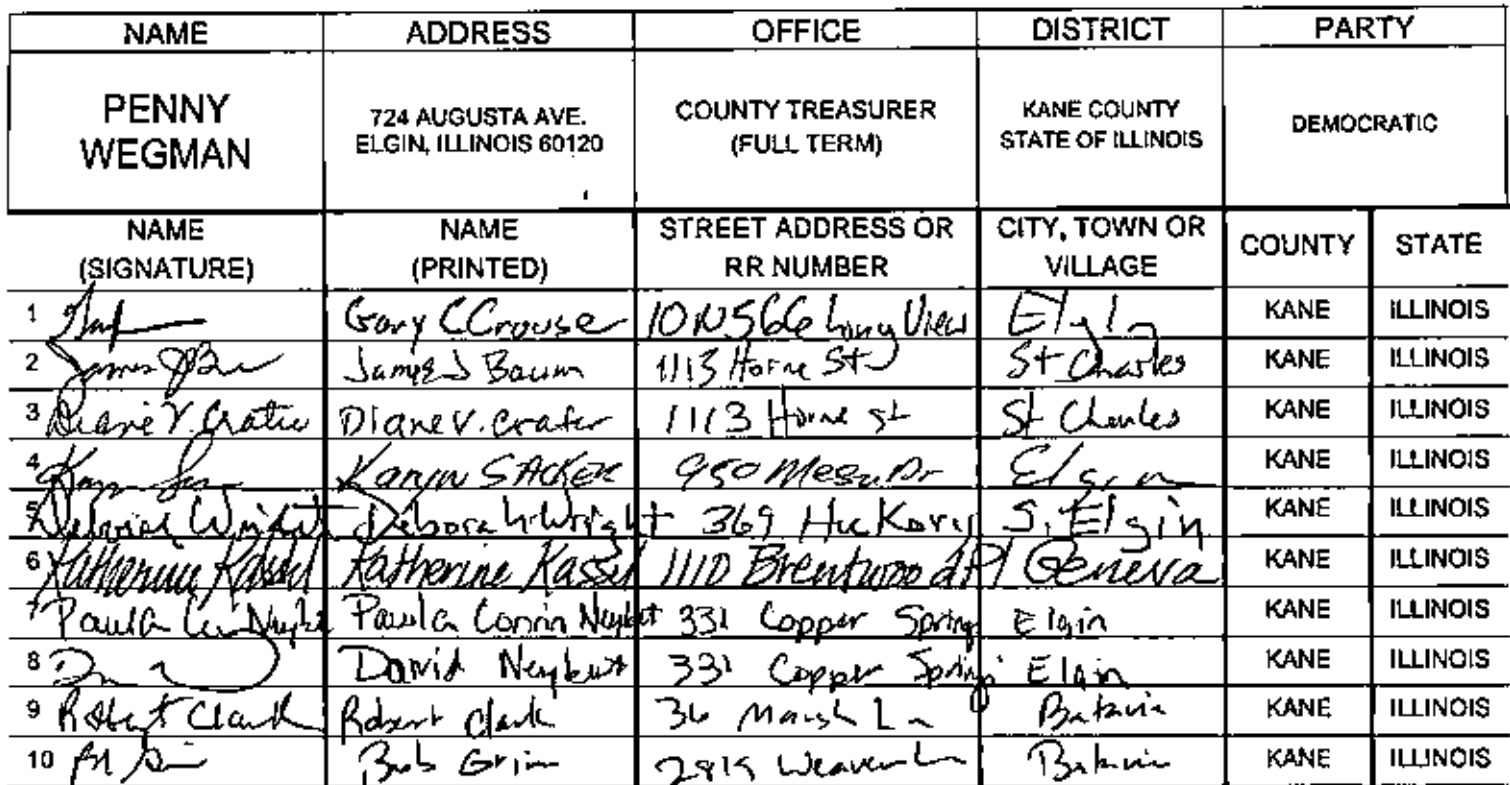 NAME ADDRESS OFFICE DISTRICT PARTY
PENNY WEGMAN 724 AUGUSTA AVE. ELGIN, ILLINOIS 60120 COUNTY TREASURER (FULL TERM) KANE COUNTY STATE OF ILLINOIS DEMOCRATIC
NAME (SIGNATURE) NAME (PRINTED) STREET ADDRESS OR RR NUMBER CITY, TOWN OR VILLAGE COUNTY STATE
1 Gary C Crouse 10N566 Long View Elgin KANE ILLINOIS
2 James J Baum 1113 Horne St St Charles KANE ILLINOIS
3 Diane V. Crater Diane V. Crater 1113 Horne St St Charles KANE ILLINOIS
4 Karyn 950 Mesa Dr Elgin KANE ILLINOIS
5 Deborah Wright Deborah Wright 369 Hickory S. Elgin KANE ILLINOIS
6 Katherine Katherine 1110 Brentwood Pl Geneva KANE ILLINOIS
7 Paula Paula 331 Copper Springs Elgin KANE ILLINOIS
8 David 331 Copper Springs Elgin KANE ILLINOIS
9 Robert Clark Robert Clark 36 Marsh Ln Batavia KANE ILLINOIS
10 Bob Grim Weaver Ln Batavia KANE ILLINOIS